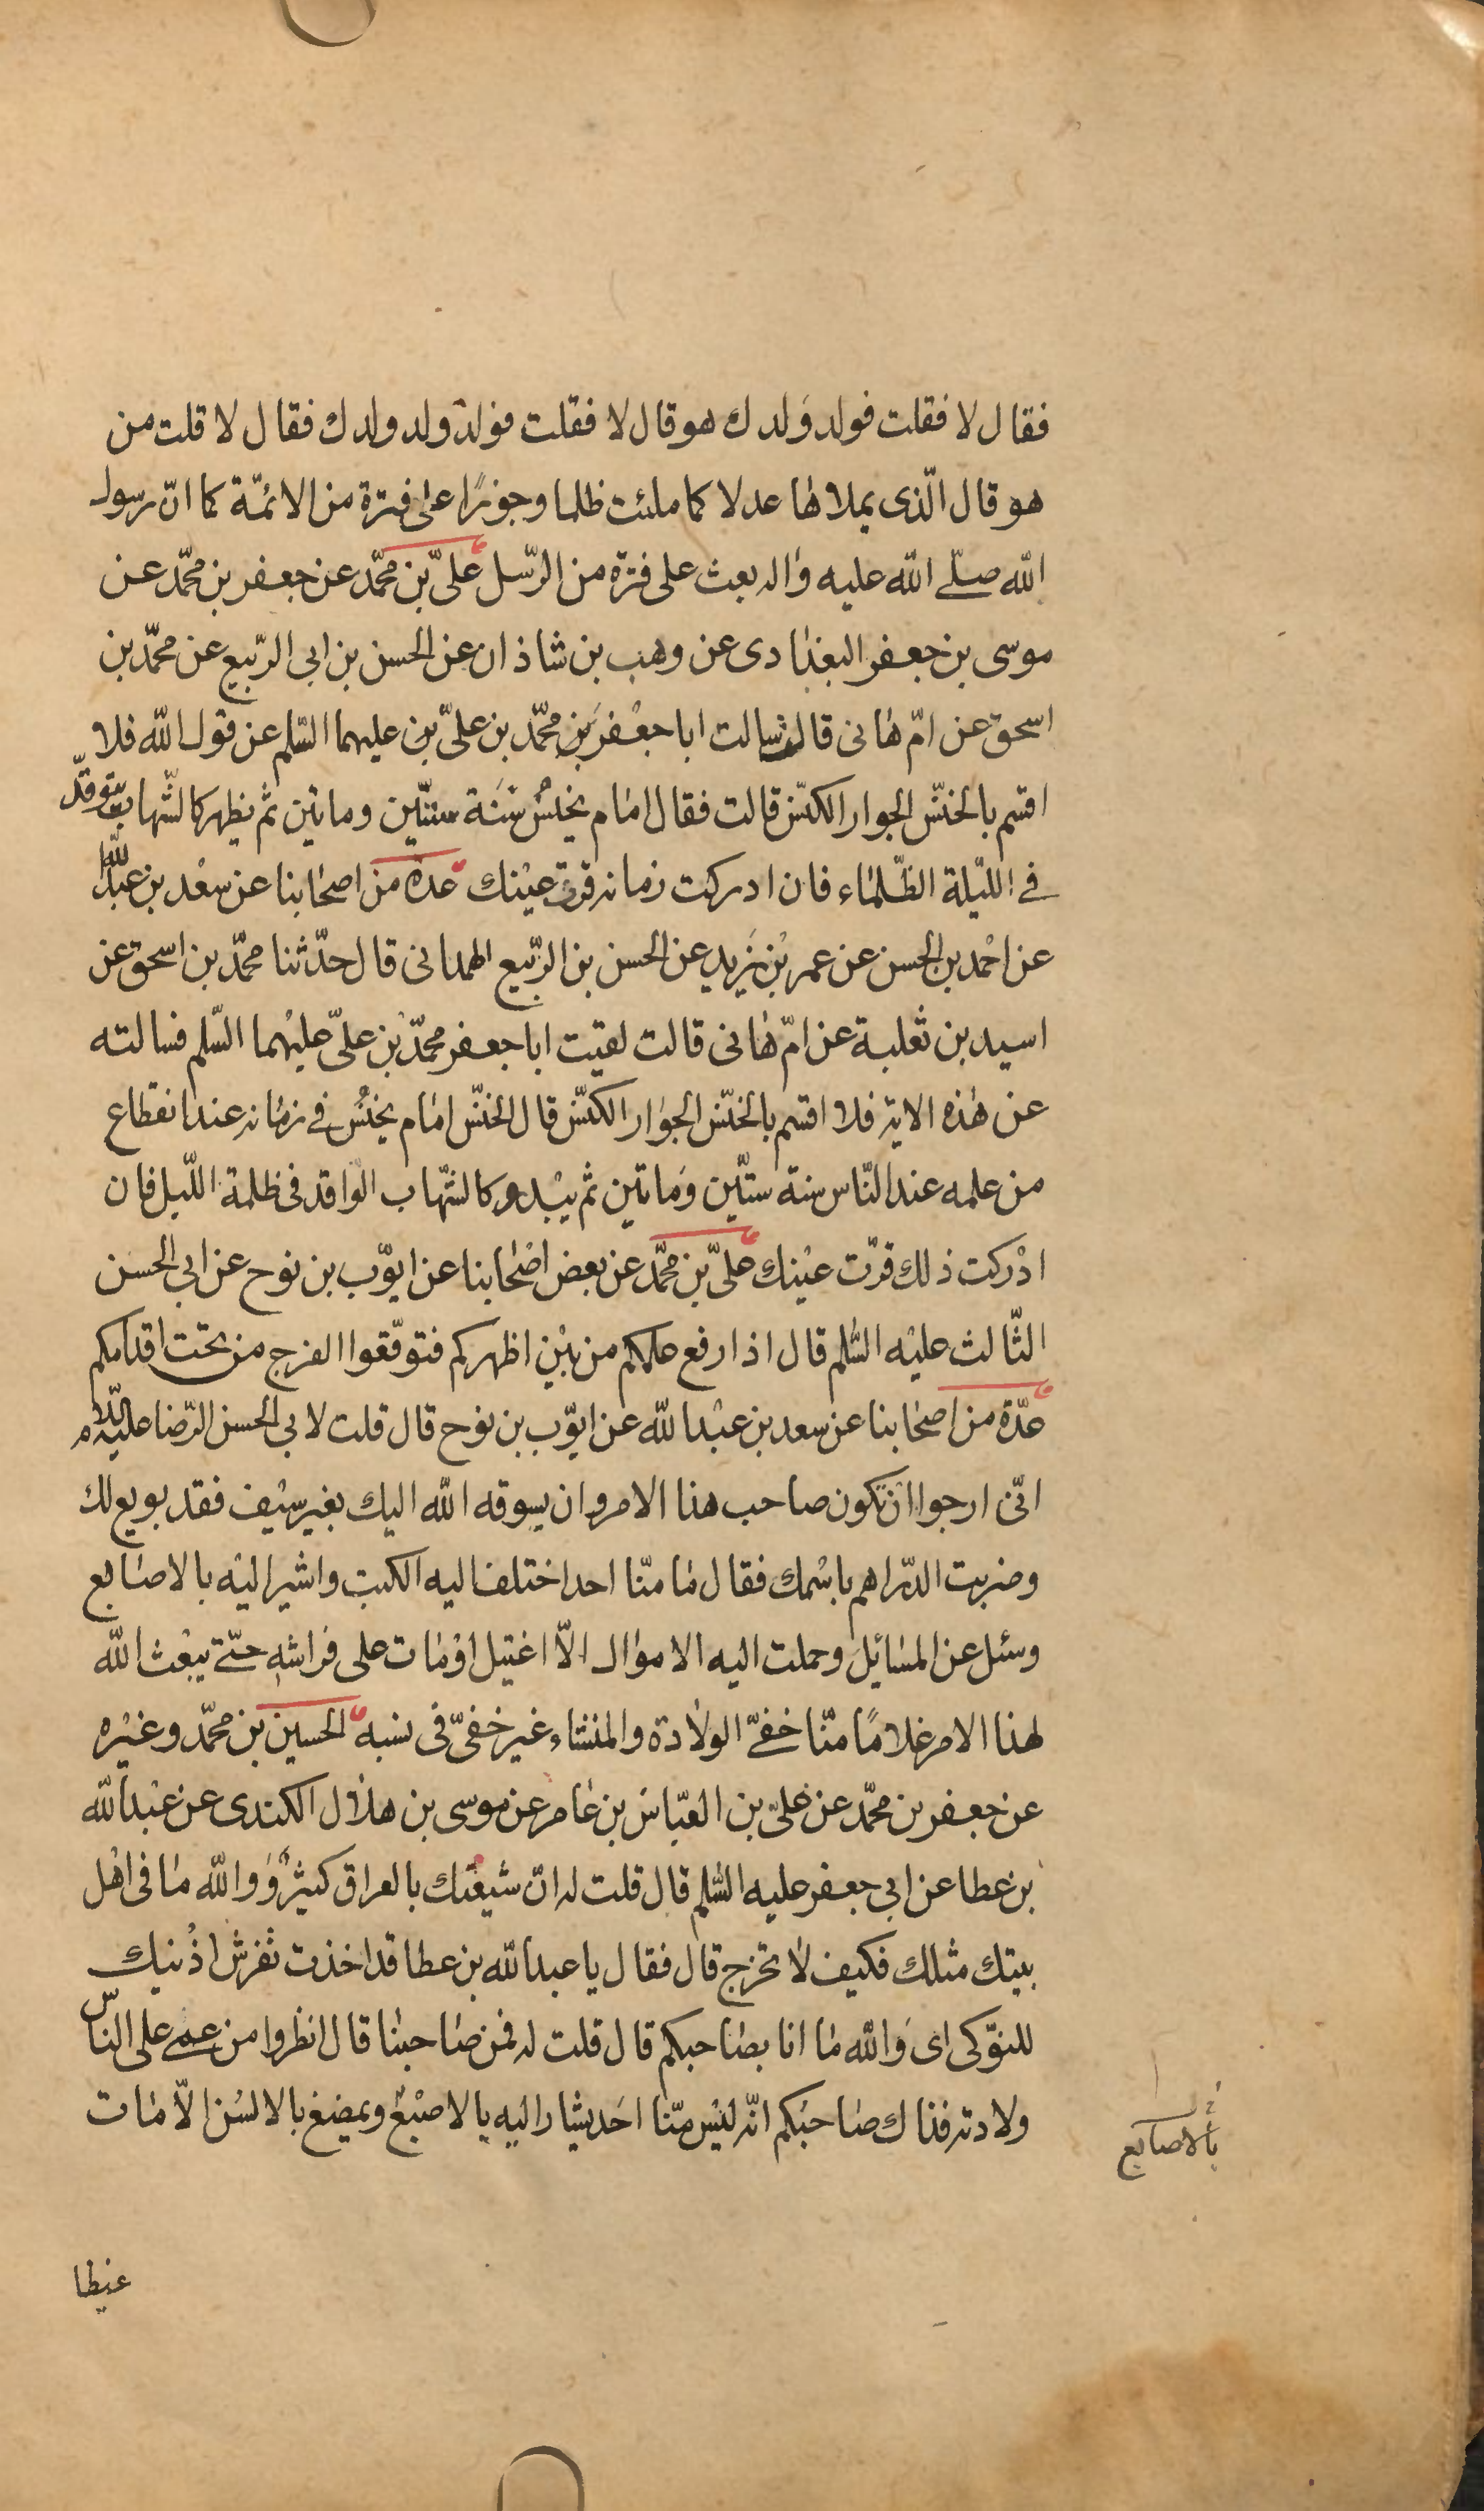 فقال لا فقلت فولد وَلدك هو قال لا فقلت فولد ولد ولدك فقال لا قلت من
هو قال الّذى يملاها عدلا كما ملئت ظلما وجورًا على فترة من الائمّة كما انّ رسول
الله صلّى الله عليه واله بعث على فترة من الرّسل علىّ بن محمّد عن جعفر بن محمّد عن
موسى بن جعفر البغدادى عن وهب بن شاذان عن الحسن بن ابى الرّبيع عن محمّد بن
اسحق عن امّ هانى قالت سالت ابا جعفر بن محمّد بن علىّ بن عليهما السّلم عن قول الله فلا
اقسم بالخنّس الجوار الكنّس قالت فقال امام يخنسُ سَنَة ستّين وماتين ثم يظهر كالشّهاب يتوقّد
فى اللّيلة الظّلماء فان ادركت زمانه قرّت عيْنك عدة من اصحابنا عن سعْد بن عبد الله
عن احْمد بن الحسن عن عمر بْن يَزيد عن الحسن بن الرّبيع الهمدانى قال حدّثنا محمّد بن اسحق عن
اسيد بن ثعلبة عن امّ هانى قالت لقيت ابا جعفر محمّد بْن علىّ عليهُما السّلم فسالته
عن هذه الاية فلا اقسم بالخنّس الجوار الكنّس قال الخنّس امام يخنسُ فى زمانه عند انقطاع
من علمه عند النّاس سنة ستّين وَماتين ثم يبْدو كالشّهاب الواقد فى ظلمة اللّيل فان
ادْركت ذلك قرّت عيْنك علىّ بن محمّد عن بعض اصْحابنا عن ايوّب بن نوح عن ابى الحسن
الثّالث عليْه السّلم قال اذا رفع علمكم من بيْن اظهركم فتوقّعوا الفرج من تحت اقدامكم
عدّة من اصحابنا عن سعد بن عبْد الله عن ايوّب بن نوح قال قلت لابى الحسن الرّضا عليه السّلام
انّى ارجوا ان تكون صاحب هذا الامر وان يسوقه الله اليك بغير سيْف فقد بويع لك
وضربت الدّراهم باسْمك فقال ما منّا احد اختلف اليه الكتب واشير اليْه بالاصابع
وسئل عن المسَائِل وحملت اليه الاموال الاّ اغتيل اوْمات على فراشهِ حتّى يبْعث الله
لهذا الامر غلامًا منّا خفىّ الولادة والمنشاء غير خفىّ فى نسبه الحسين بن محمّد وغيْره
عن جعفر بن محمّد عن علىّ بن العبّاس بن عامر عن موسى بن هلال الكندى عن عبْد الله
بن عطا عن ابى جعفر عليه السّلم قال قلت له انّ شيعتك بالعراق كثيرٌ ووالله ما فى اهْل
بيتك مثلك فكيف لا تخرج قال فقال يا عبد الله بن عطا قد اخذت تفرش اذُنيك
للنوّكى اى وَالله ما انا بصاحبكم قال قلت له فمن صاحبنا قال انظروا من عمى على الناسّ
ولادته فذاك صاحبُكم انّه ليْس منّا احَد يشار اليْه بالاصبْع ويمضغ بالالسُن الاّ مات
بالاصابع
غيظا